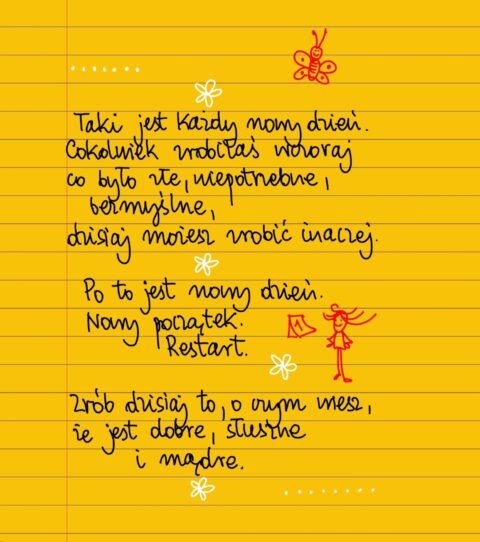 Taki jest każdy nowy dzień.
Cokolwiek zrobiłaś wczoraj
co było złe, niepotrzebne,
bezmyślne,
dzisiaj możesz zrobić inaczej.
Po to jest nowy dzień.
Nowy początek.
1
Restart.
Zrób dzisiaj to, o czym wiesz,
że jest dobre, słuszne
i mądre.